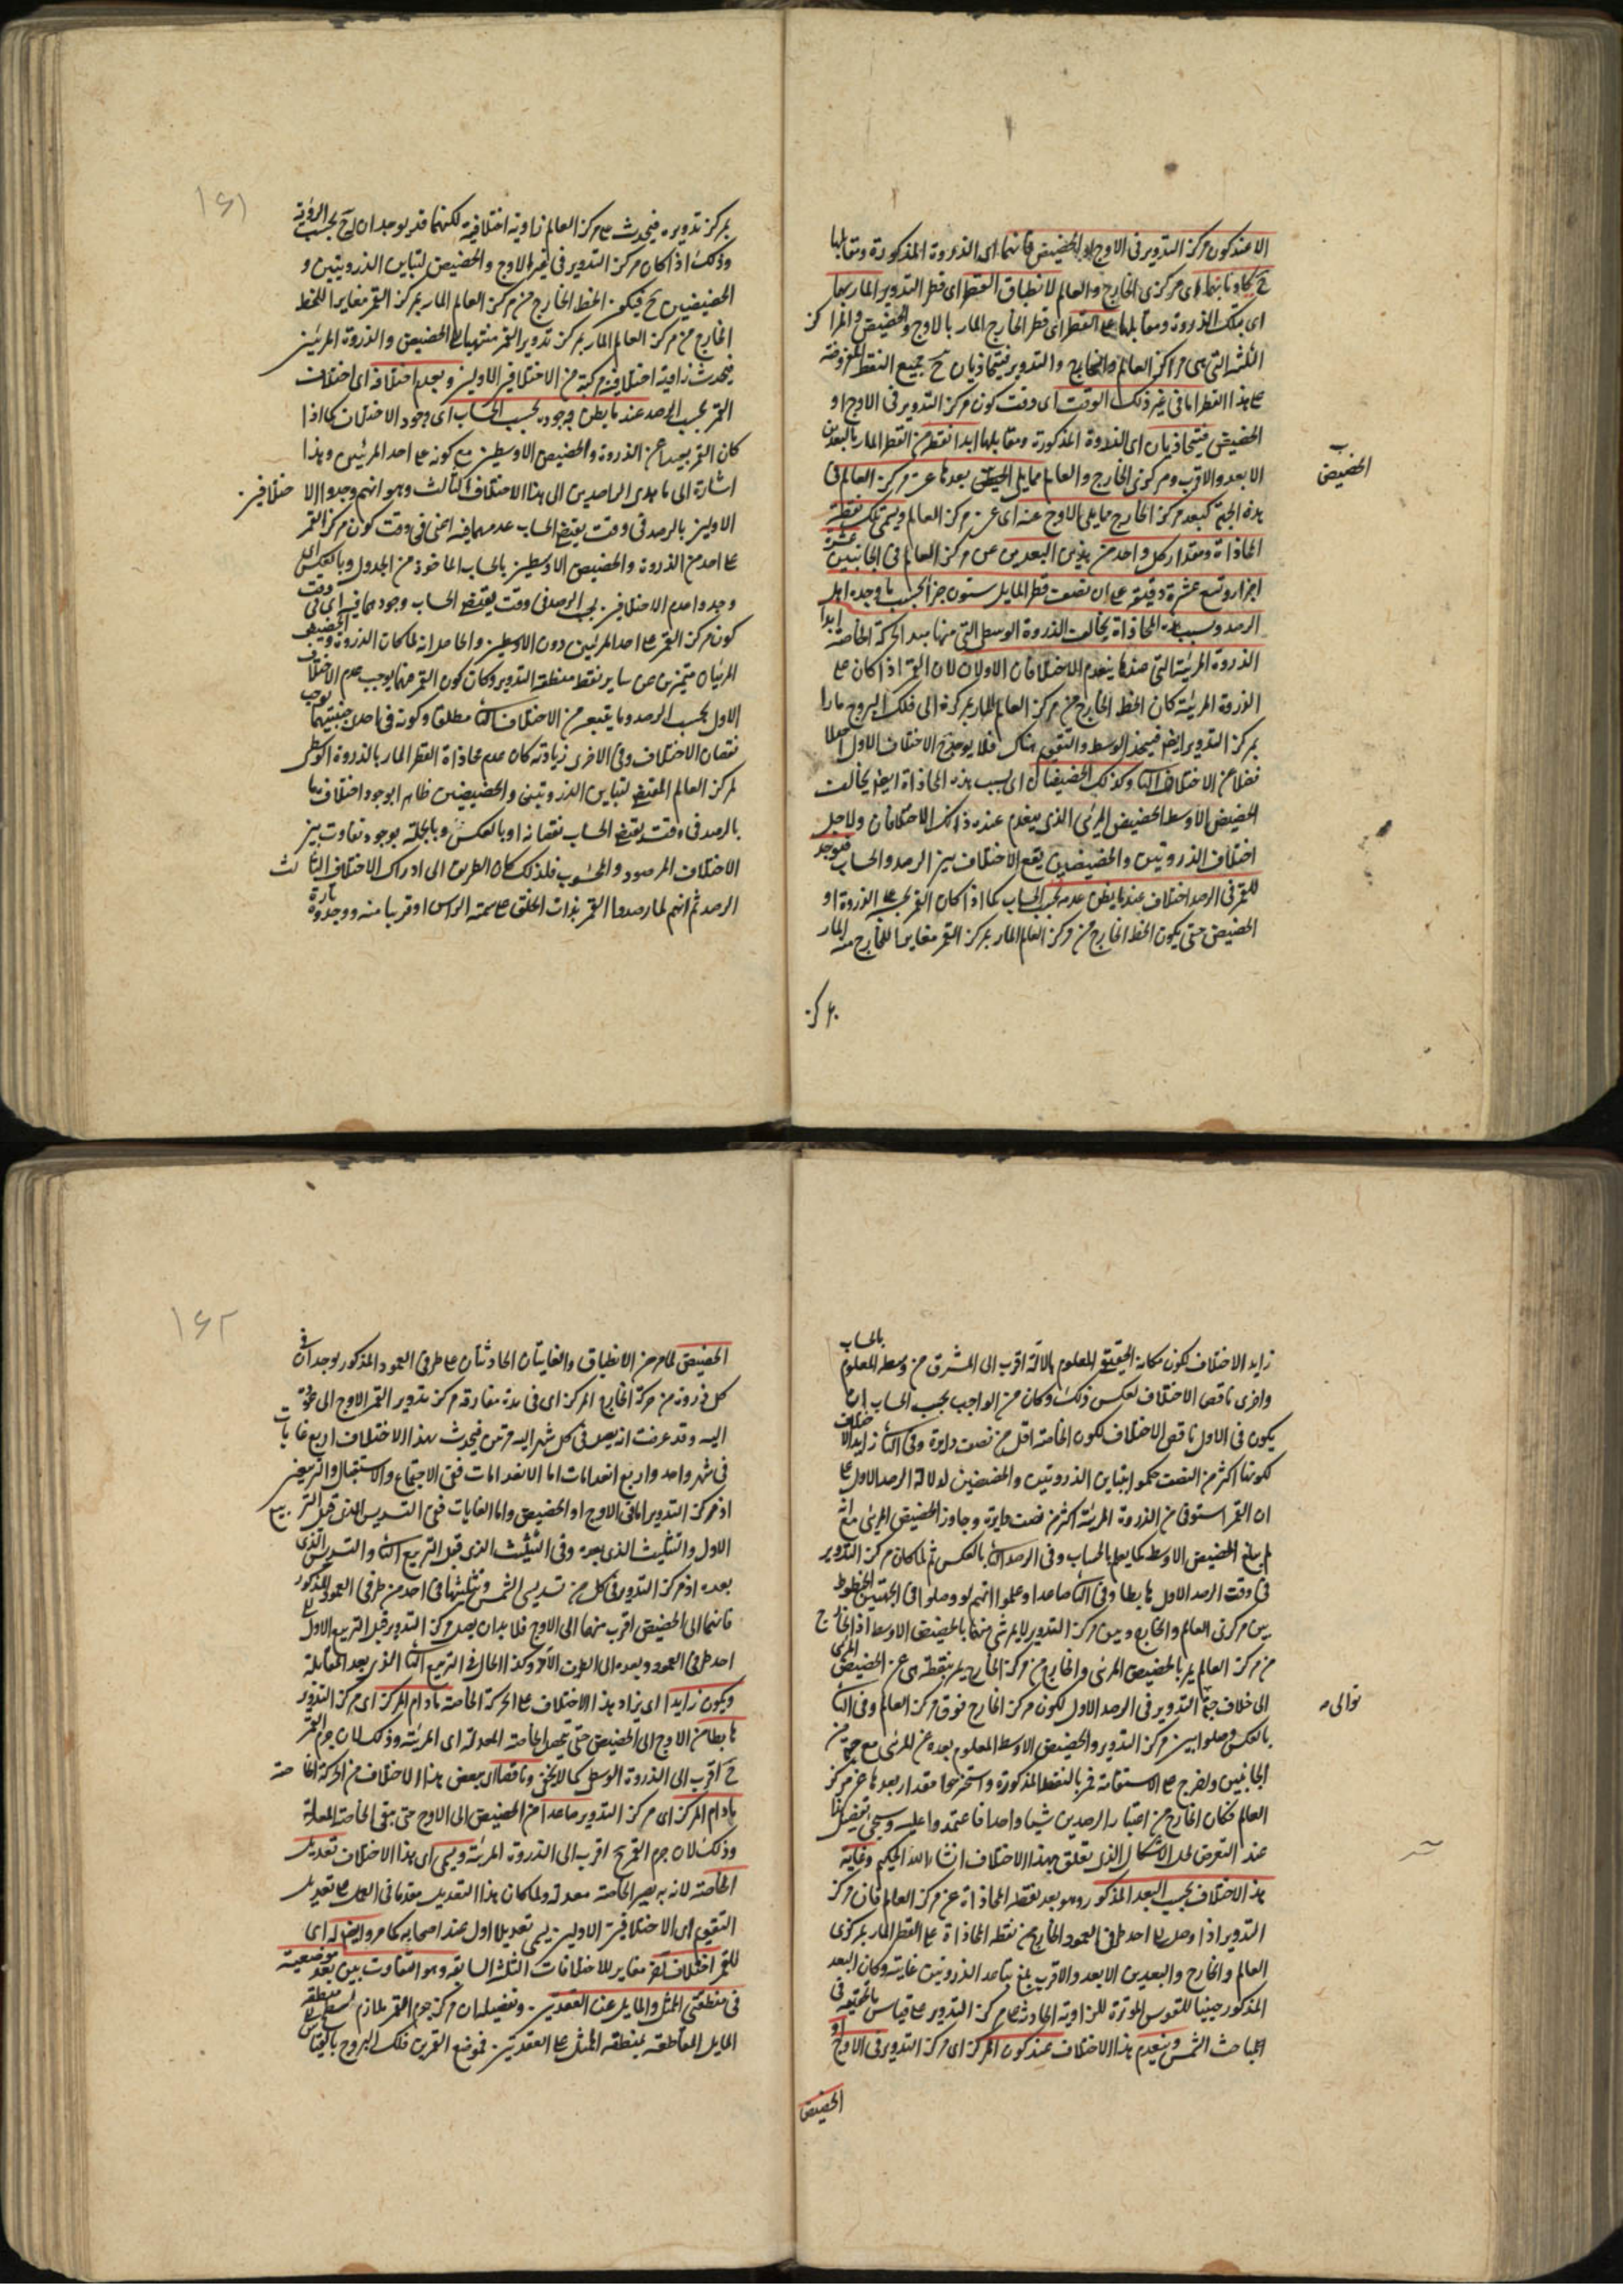 الا عند كون مركز التدوير فى الاوج او الحضيض فانهما اى الذروة المذكورة ومقابلها
ح يحاذيانهما اى مركزى الخارج والعالم لانطباق القطر اى قطر التدوير المار بهما
اى بتلك الذروة ومقابلها على القطر اى قطر الخارج المار بالاوج والحضيض والمراكز
الثلثه التى هى مراكز العالم والخارج والتدوير فيتحاذيان ح جميع النقط المفروضة
على هذا القطر اما فى غير ذلك الوقت اى وقت كون مركز التدوير فى الاوج او
الحضيض فيتحاذيان اى الذروة المذكورة ومقابلها ابدا نقطة من القطر المار بالبعدين
الابعد والاقرب ومركزى الخارج والعالم مما يلى الحضيض بعدها عن مركز العالم فى
الحضيض
هذه الجهة كبعد مركز الخارج مما يلى الاوج عنه اى عن مركز العالم ويسمى تلك نقطة
المحاذاة ومقدار كل واحد من هذين البعدين عن مركز العالم فى الجانبين عشرة
اجزاء وتسع عشرة دقيقة على ان نصف قطر المايل ستون جزأ بحسب ما وجده اهل
الرصد وبسبب هذه المحاذاة يخالف الذروة الوسطى التى منها مبدا الحركة الخاصة ابدا
الذروة المرئية التى عندها ينعدم الاختلافان الاولان لان القمر اذا كان على
الذروة المرئية كان الخط الخارج من مركز العالم المار بمركزه الى فلك البروج مارا
بمركز التدوير ايضا فيتحد الوسط والتقويم هناك فلا يوجد ح الاختلاف الاول اصلا
فضلا عن الاختلاف الثانى وكذلك الحضيضان اى بسبب هذه المحاذاة ايضا يخالف
الحضيض الاوسط الحضيض المرئى الذى ينعدم عنده ذانك الاختلافان ولاجل
اختلاف الذروتين والحضيضين يقع الاختلاف بين الرصد والحساب فيوجد
للقمر فى الرصد اختلاف عند ما يظن عدمه بحسب الحساب كما اذا كان القمر بحسبه على الذروة او
الحضيض حتى يكون الخط الخارج من مركز العالم المار بمركز القمر مغايرا للخارج منه المار
بمركز
١٦١
بمركز تدويره فيحدث على مركز العالم زاوية اختلافية لكنهما قد يوجدان ح بحسب الرؤية
وذلك اذا كان مركز التدوير فى غير الاوج والحضيض لتباين الذروتين و
الحضيضين ح فيكون الخط الخارج من مركز العالم المار بمركز القمر مغايرا للخط
الخارج من مركز العالم المار بمركز تدوير القمر منتهيا الى الحضيض والذروة المرئيين
فيحدث زاوية اختلافية مركبة من الاختلافين الاولين ويعدم اختلافه اى اختلاف
القمر بحسب الرصد عند ما يظن وجوده بحسب الحساب اى وجود الاختلاف كما اذا
كان القمر بعيدا عن الذروة والحضيض الاوسطين مع كونه على احد المرئيين وهذا
اشارة الى ما هدى الراصدين الى هذا الاختلاف الثالث وهو انهم وجدوا الاختلافين
الاولين بالرصد فى وقت يقتضى الحساب عدمهما فيه اعنى فى وقت كون مركز القمر
على احد من الذروة والحضيض الاوسطين بالحساب الماخوذ من الجدول وبالعكس اى
وجدوا عدم الاختلافين بحسب الرصد فى وقت يقتضى الحساب وجودهما فيه اى فى وقت
كون مركز القمر على احد المرئيين دون الاوسطين والحاصل انه لما كان الذروة والحضيض
المرئيان متميزين عن ساير نقط منطقة التدوير وكان كون القمر فيهما يوجب عدم الاختلاف
الاول بحسب الرصد وما يتبعه من الاختلاف الثانى مطلقا وكونه فى احدى جنبتيهما يوجب
نقصان الاختلاف وفى الاخرى زيادته كان عدم محاذاة القطر المار بالذروة الوسطى
لمركز العالم المقتضى لتباين الذروتين والحضيضين ظاهرا بوجود اختلاف ما
بالرصد فى وقت يقتضى الحساب نقصانه او بالعكس وبالجملة بوجود تفاوت بين
الاختلاف المرصود والمحسوب فلذلك كان الطريق الى ادراك الاختلاف الثالث
الرصد ثم انهم لما رصدوا القمر بذات الحلق على سمت الراس او قريبا منه ووجدوه تارة
زايد الاختلاف لكون مكانه الحقيقى المعلوم بالآلة اقرب الى المشرق من وسطه المعلوم بالحساب
واخرى ناقص الاختلاف لعكس ذلك وكان من الواجب بحسب الحساب ان
يكون فى الاول ناقص الاختلاف لكون الخاصة اقل من نصف دايرة وفى الثانى زايد الاختلاف
لكونها اكثر من النصف حكموا بتباين الذروتين والحضيضين لدلالة الرصد الاول على
ان القمر استوفى من الذروة المرئية اكثر من نصف دايرة وجاوز الحضيض المرئى مع انه
لم يبلغ الحضيض الاوسط كما يعلم بالحساب وفى الرصد الثانى بالعكس ثم لما كان مركز التدوير
فى وقت الرصد الاول هابطا وفى الثانى صاعدا وعلموا انهم لو وصلوا فى الجهتين الخطوط
بين مركزى العالم والخارج وبين مركز التدوير لا يمر شئ منهما بالحضيض الاوسط اذ الخارج
من مركز العالم يمر بالحضيض المرئى والخارج من مركز الخارج يمر بنقطة هى عن الحضيض المرئى
الى خلاف جهة التدوير فى الرصد الاول لكون مركز الخارج فوق مركز العالم وفى الثانى
توالى
بالعكس وصلوا بين مركز التدوير والحضيض الاوسط المعلوم بعده عن المرئى مع جهته من
الجانبين واخرج على الاستقامة فمر بالنقطة المذكورة واستخرجوا مقدار بعدها عن مركز
العالم فكان الخارج من اعتبار الرصدين شيأ واحدا فاعتمدوا عليه وسيجئ تفصيل هذا
عند التعرض لحل الاشكال الذى تعلق بهذا الاختلاف ان شاء الله الحكيم وغاية
هذا الاختلاف بحسب البعد المذكور وهو بعد نقطة المحاذاة عن مركز العالم فان مركز
التدوير اذا وصل الى احد طرفى العمود الخارج من نقطة المحاذاة على القطر المار بمركزى
العالم والخارج والبعدين الابعد والاقرب بلغ تباعد الذروتين غايته وكان البعد
المذكور جيبا للقوس الموترة للزاوية الحادثة على مركز التدوير على قياس ما تحققته فى
المباحث الشمس وينعدم هذا الاختلاف عند كون المركز اى مركز التدوير فى الاوج او
الحضيض
١٦٢
الحضيض لما مر من الانطباق والغايتان الحادثتان على طرفى العمود المذكور يوجدان فى
كل دورة من حركة الخارج المركز اى فى مدة مفارقة مركز تدوير القمر الاوج الى عوده
اليه وقد عرفت انه يصل فى كل شهر اليه مرتين فيحدث بهذا الاختلاف اربع غايات
فى شهر واحد واربع انعدامات اما الانعدامات ففى الاجتماع والاستقبال والتربيعين
اذ مركز التدوير اما فى الاوج او الحضيض واما الغايات ففى التسديس الذى قبل التربيع
الاول والتثليث الذى بعده وفى التثليث الذى قبل التربيع الثانى والتسديس الذى
بعده اذ مركز التدوير فى كل من تسديسى الشمس وتثليثها فى احد من طرفى العمود المذكور
فانهما الى الحضيض اقرب منهما الى الاوج فلا بد ان يصل مركز التدوير قبل التربيع الاول الى
احد طرفى العمود وبعده الى الطرف الآخر وكذا الحال فى التربيع الثانى الذى بعد المقابلة
ويكون زايدا اى يزاد هذا الاختلاف على الحركة الخاصة ما دام المركز اى مركز التدوير
هابطا من الاوج الى الحضيض حتى يحصل الخاصة المعدلة اى المرئية وذلك لان جرم القمر
ح اقرب الى الذروة الوسطى كما لا يخفى وناقصا اى ينقص هذا الاختلاف من الحركة الخاصة
ما دام المركز اى مركز التدوير صاعدا من الحضيض الى الاوج حتى يبقى الخاصة المعدلة
وذلك لان جرم القمر ح اقرب الى الذروة المرئية ويسمى اى هذا الاختلاف تعديل
الخاصة لانه به يصير الخاصة معدلة ولما كان هذا التعديل مقدما فى العمل على تعديل
التقويم اى الاختلافين الاولين يسمى تعديلا اول عند اصحابه كما مر وايضا له اى
للقمر اختلاف آخر مغاير للاختلافات الثلثة السابقة وهو التفاوت بين بعد موضعيه
فى منطقتى الممثل والمايل عن العقدتين وتفصيله ان مركز جرم القمر ملازم لسطح منطقة
المايل المقاطعة لمنطقة الممثل على العقدتين فموضع القمر من فلك البروج بالقياس الى